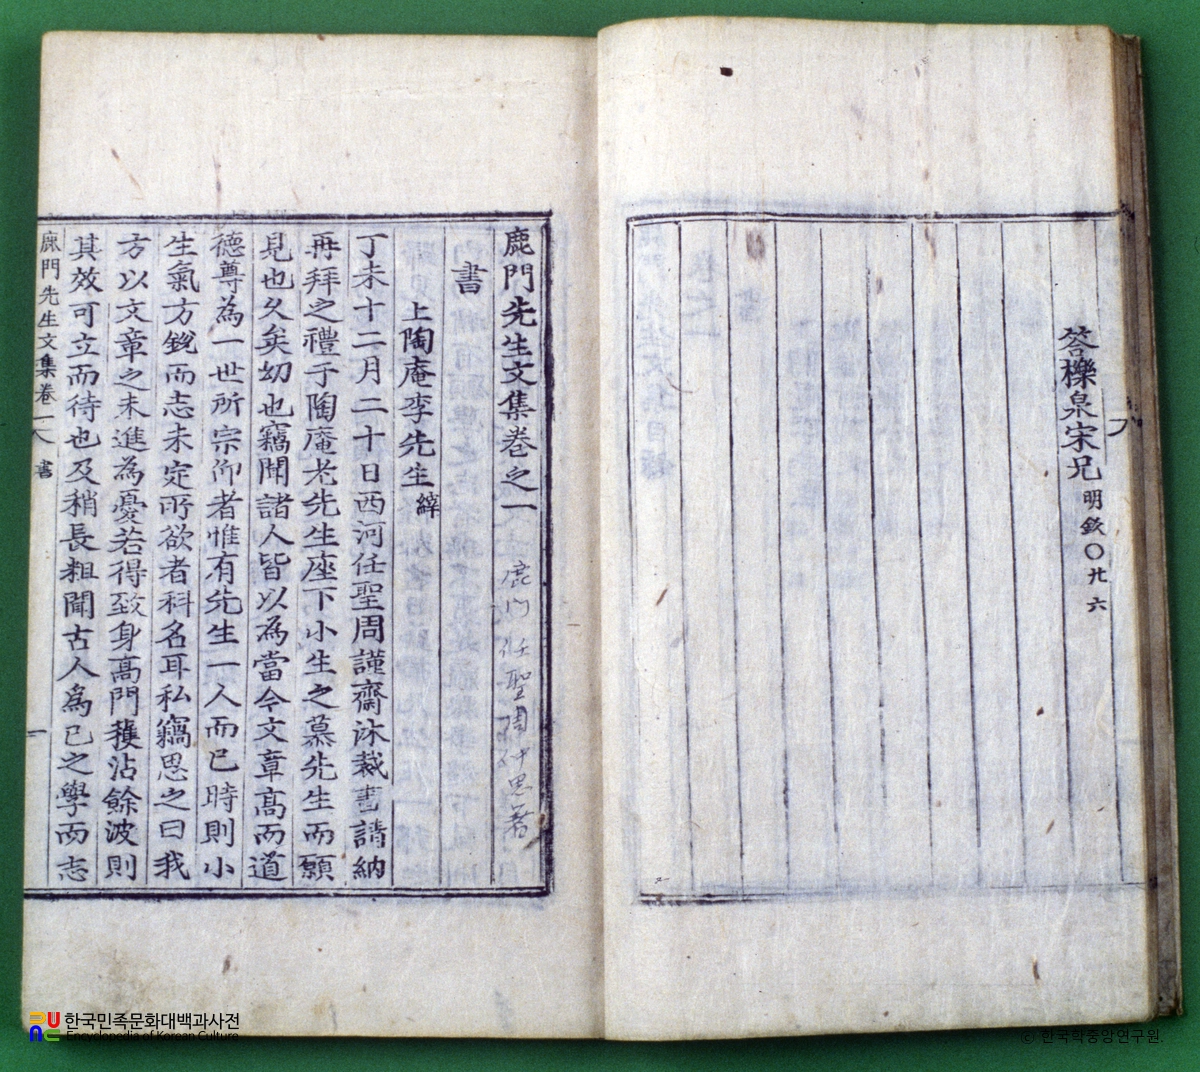 答櫟泉宋兄 明欽〇廾六
鹿門先生文集卷之一
鹿門 任聖周仲思著
書
上陶庵李先生 縡
丁未十二月二十日西河任聖周謹齋沐裁書請納
再拜之禮于陶庵老先生座下小生之慕先生而願
見也久矣幼也竊聞諸人皆以為當今文章高而道
德尊為一世所宗仰者惟有先生一人而已時則小
生氣方銳而志未定所欲者科名耳私竊思之曰我
方以文章之未進為憂若得致身高門穫沾餘波則
其效可立而待也及稍長粗聞古人為己之學而志
鹿門先生文集卷一 書
一
한국민족문화대백과사전
Encyclopedia of Korean Culture
© 한국학중앙연구원.